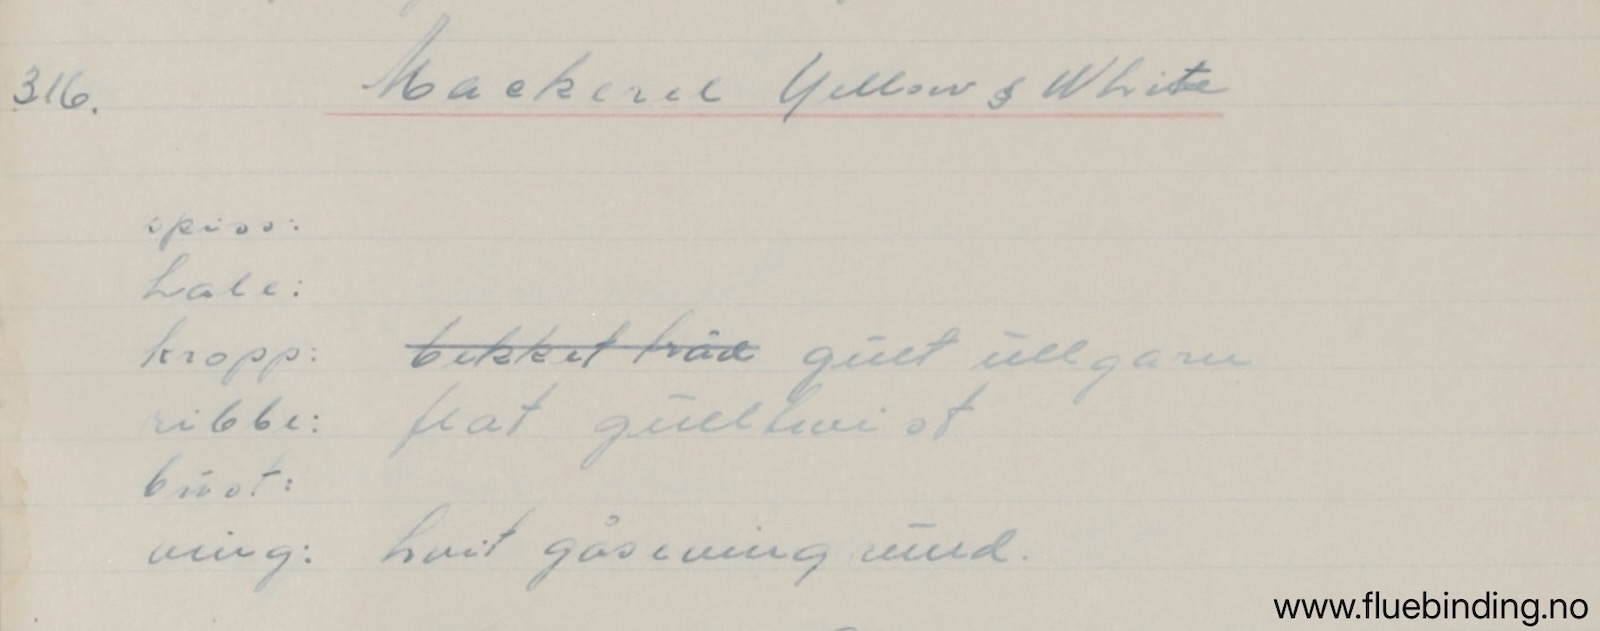 316. Mackerel Yellow & White
spiss:
hale:
kropp: bekket tråd gult ullgarn
ribbe: flat gulltvist
bust:
ving: hvit gåseving rund.
www.fluebinding.no